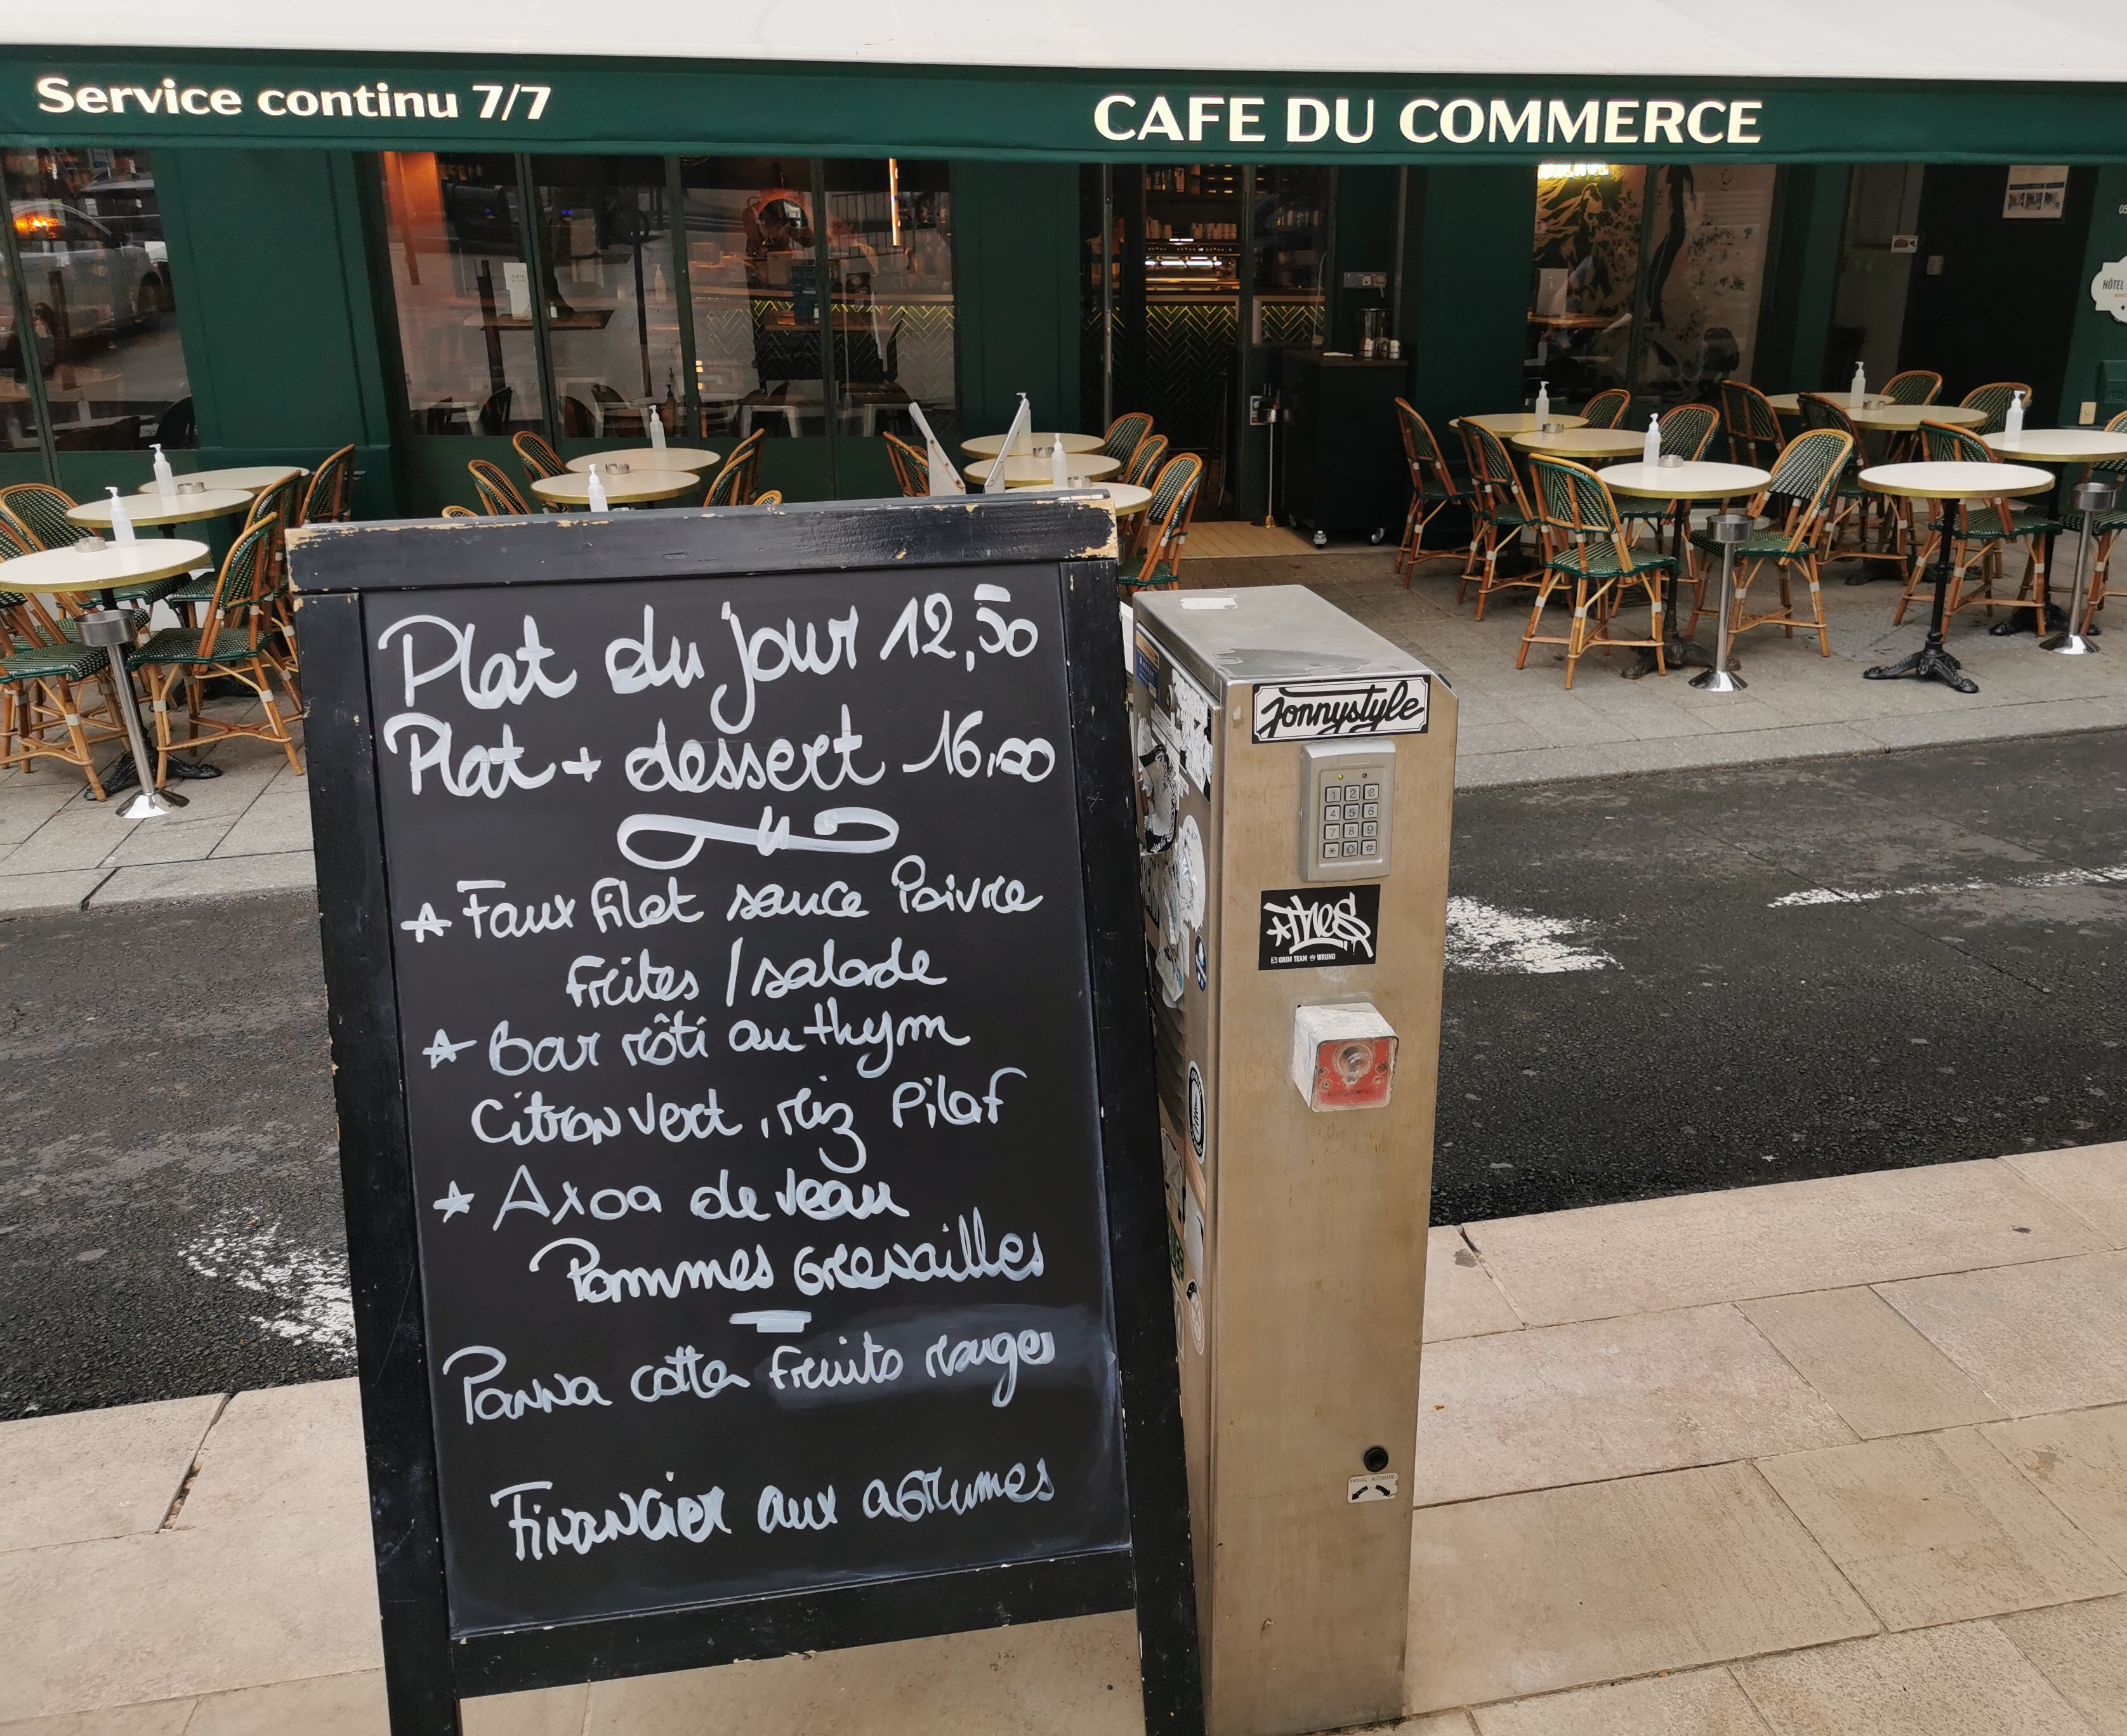 Service continu 7/7
CAFE DU COMMERCE
HÔTEL
Plat du jour 12,50
Plat + dessert 16,00
Faux filet sauce Poivre
Frites / salade
Bar rôti au thym
Citron vert, riz Pilaf
Axoa de veau
Pommes Grenailles
Panna cotta Fruits rouges
Financier aux agrumes
Jonnystyle
1 2 3
4 5 6
7 8 9
* 0 #
*Thes
GRIM TEAM WRUNG
MANUAL AUTOMATIC